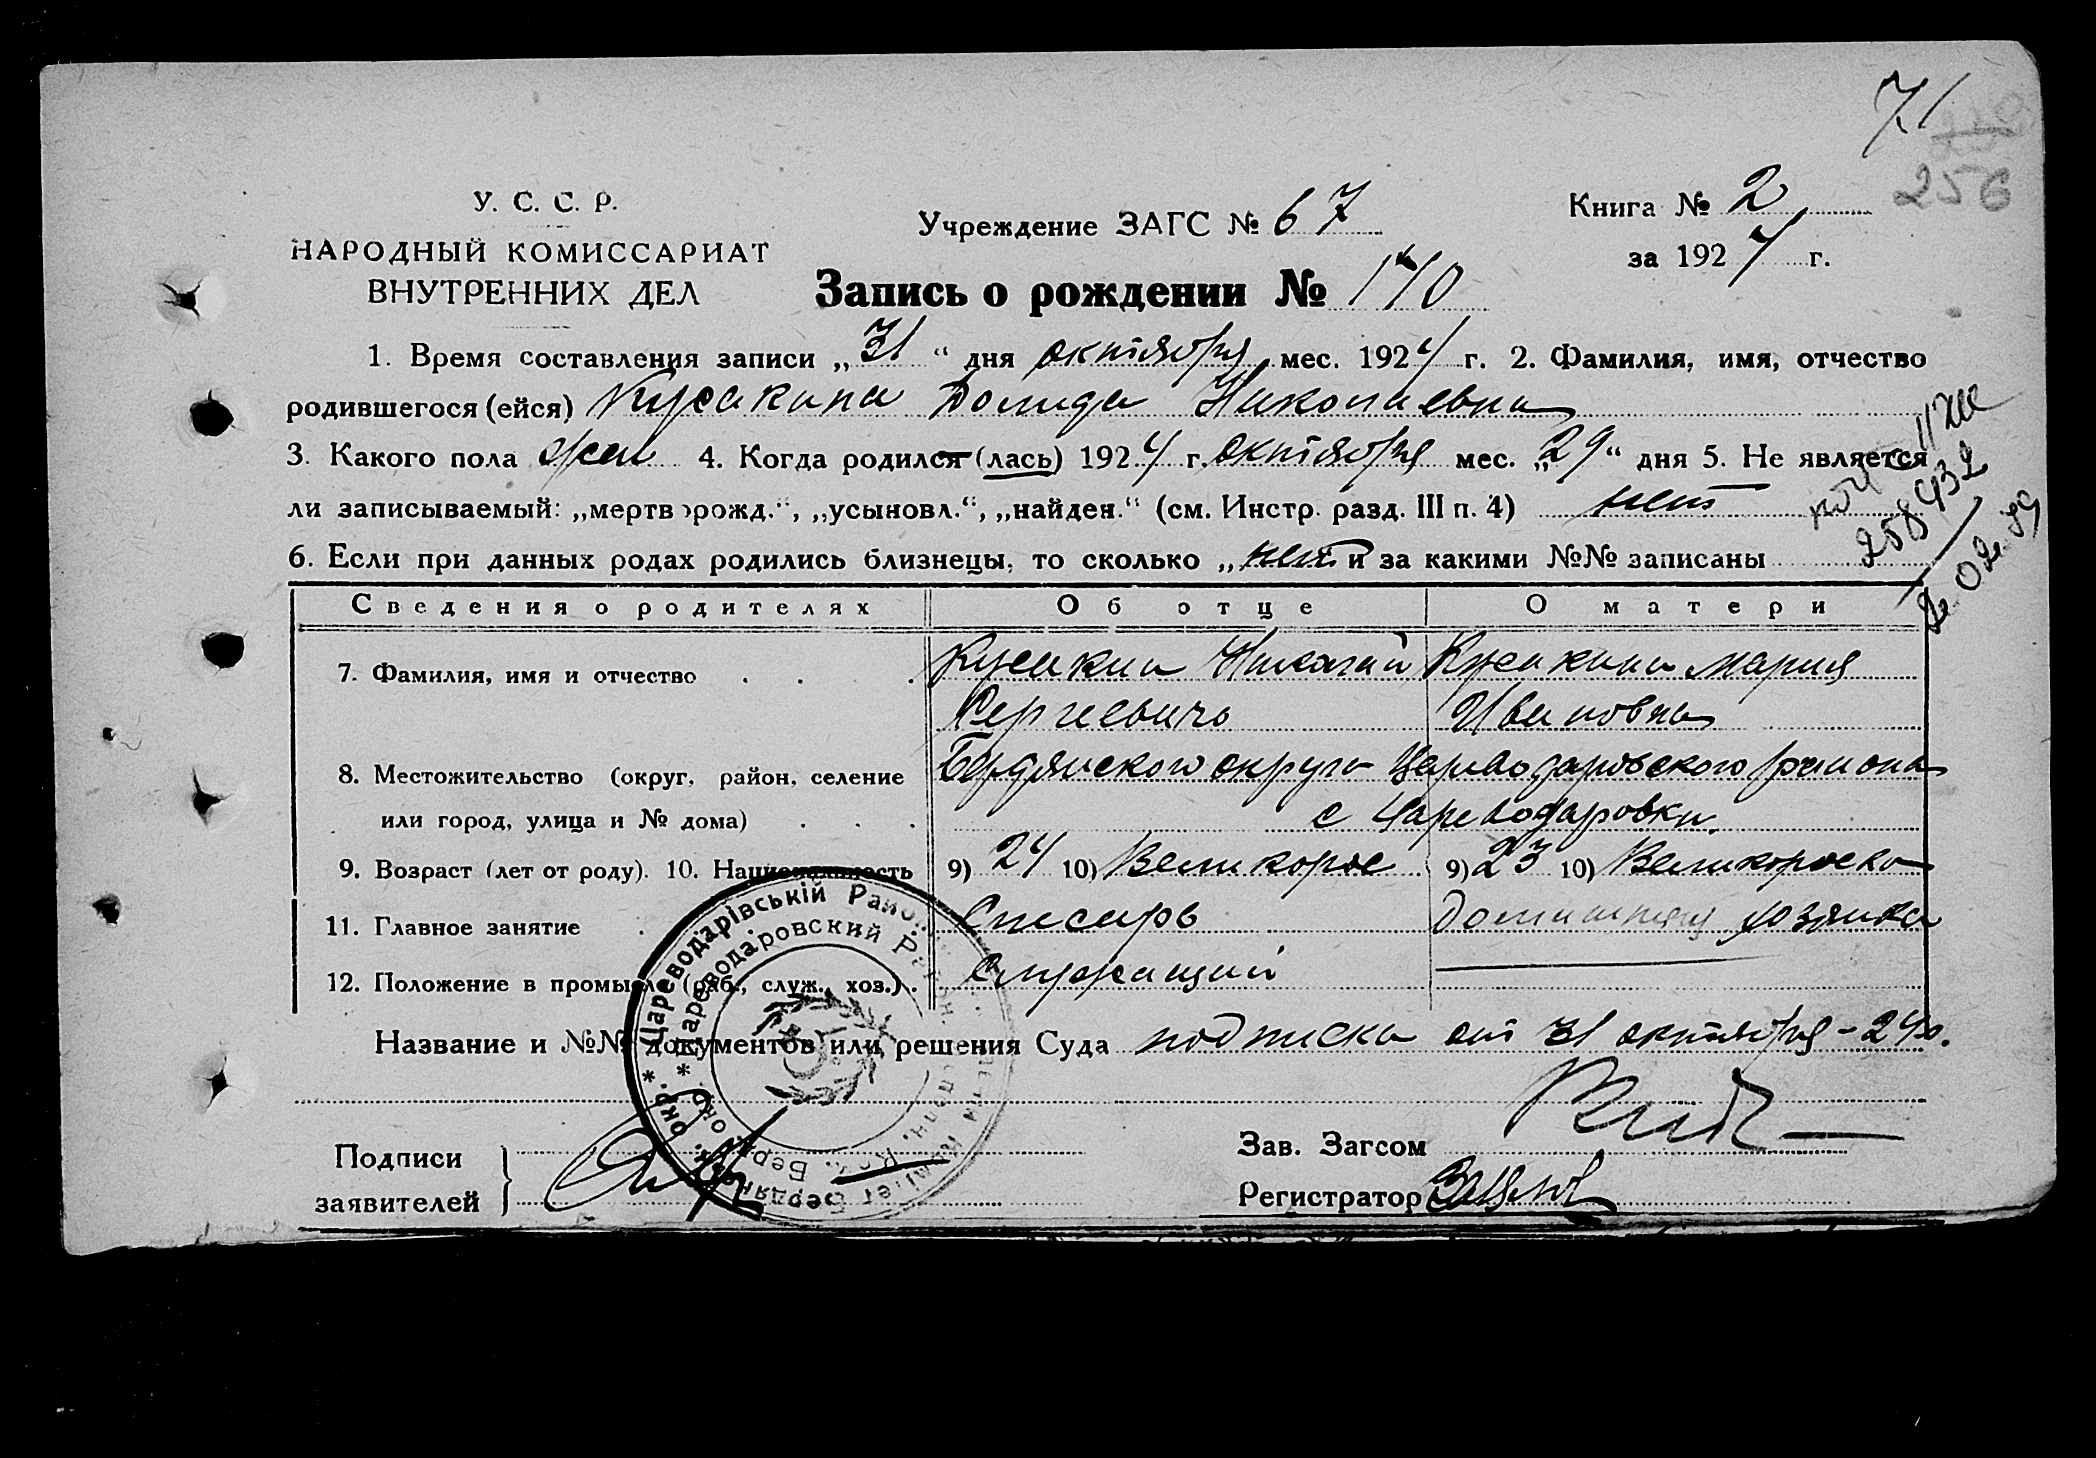 71
256
У. С. С. Р.
НАРОДНЫЙ КОМИССАРИАТ
ВНУТРЕННИХ ДЕЛ
Учреждение ЗАГС № 67
Книга № 2
за 1924 г.
Запись о рождении № 140
1. Время составления записи „31“ дня октября мес. 1924 г. 2. Фамилия, имя, отчество
родившегося (ейся) Кусакина Николаевна
3. Какого пола жен 4. Когда родился (лась) 1924 г. октября мес. „29“ дня 5. Не является
ли записываемый: „мертворожд.“, „усыновл.“, „найден.“ (см. Инстр. разд. III п. 4) нет
6. Если при данных родах родились близнецы, то сколько „нет и за какими №№ записаны
258432
Сведения о родителях Об отце О матери
7. Фамилия, имя и отчество . . . . Кусакин Николай Кусакина Мария
Сергиевичъ Ивановна
8. Местожительство (округ, район, селение Бердянского округа Цареводаровского района
или город, улица и № дома) . . . с Цареводаровки.
9. Возраст (лет от роду). 10. Национальность 9) 24 10) Великорос 9) 23 10) Великороска
11. Главное занятие . Слесарь Домашняя хозяйка
12. Положение в промысле (раб., служ., хоз.) . Служащий
Название и №№ документов или решения Суда подписка от 31 октября - 24 г.
Цареводарівський Район
Цареводаровский Район
Подписи
заявителей
Зав. Загсом
Регистратор